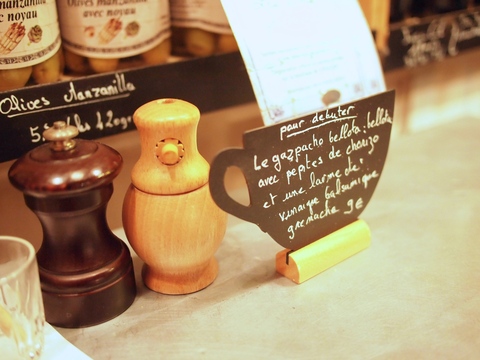 Olives manzanilla
avec noyau
manzanilla
avec noyau
Olives Manzanilla
pour debuter
Le gazpacho bellota-bellota
avec pepites de chorizo
et une larme de
vinaigre balsamique
grenache 9€